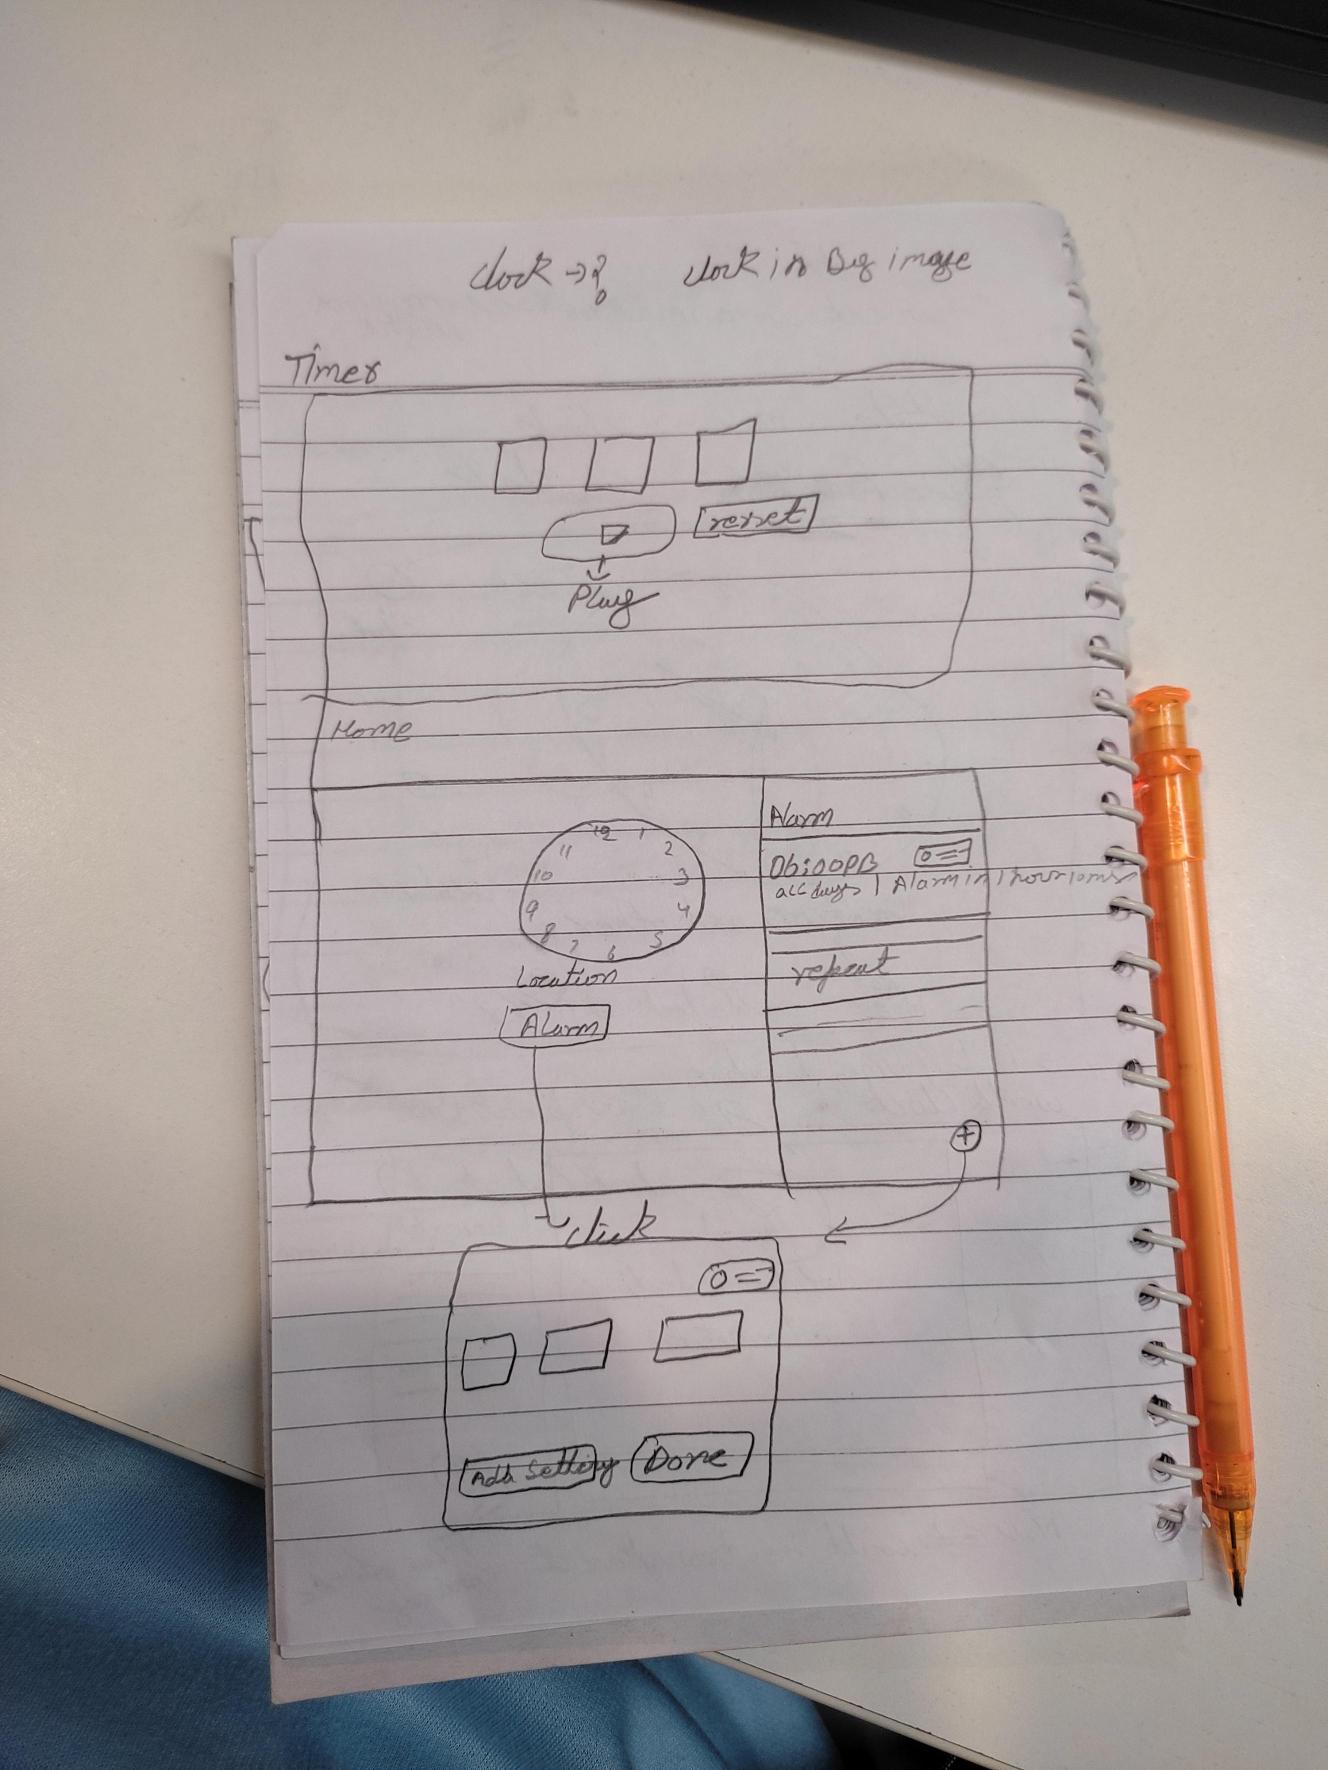 clock →? clock in Big image
Timer
reset
Play
Home
12 1 2 3 4 5 6 7 8 9 10 11
Location
Alarm
Alarm
06:00PB
all days | Alarm in 1 hour 10min
repeat
+
click
Add Setting
Done